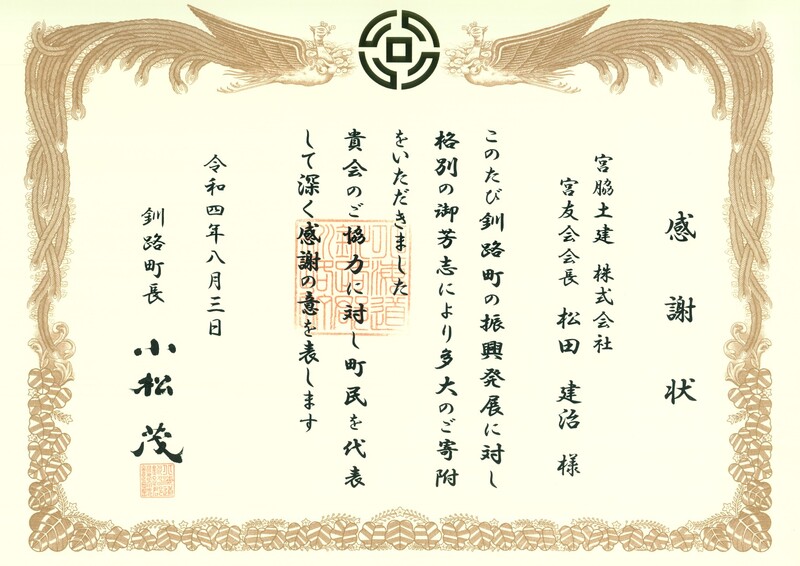 感謝状
宮脇土建 株式会社
宮友会会長 松田 建治 様
このたび釧路町の振興発展に対し
格別の御芳志により多大のご寄附
をいただきました
貴会のご協力に対し町民を代表
して深く感謝の意を表します
令和四年八月三日
釧路町長 小松 茂